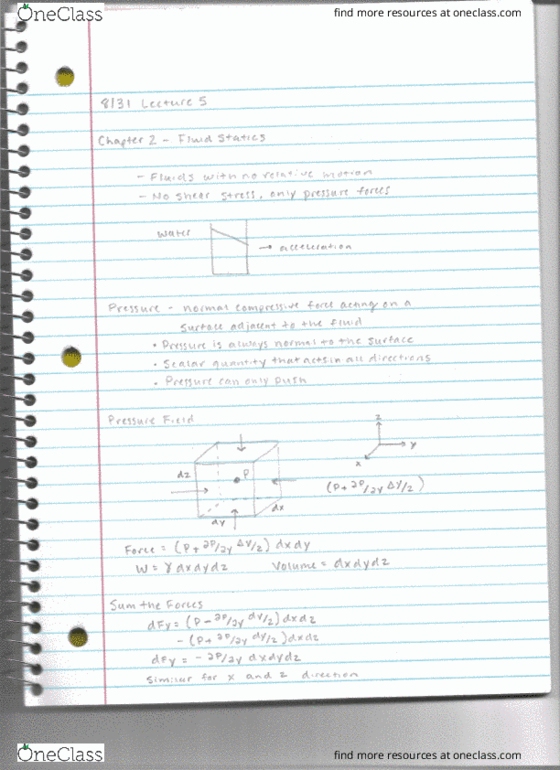 OneClass
find more resources at oneclass.com
8/31 Lecture 5
Chapter 2 - Fluid Statics
- Fluids with no relative motion
- No shear stress, only pressure forces
water
→ acceleration
Pressure - normal compressive force acting on a
surface adjacent to the fluid
• Pressure is always normal to the surface
• Scalar quantity that acts in all directions
• Pressure can only push
Pressure Field
z
y
x
dz
P
dx
dy
(P + ∂P/∂y Δy/2)
Force = (P + ∂P/∂y Δy/2) dxdy
W = γ dxdydz Volume = dxdydz
Sum the Forces
dFy = (P - ∂P/∂y dy/2) dxdz
- (P + ∂P/∂y dy/2) dxdz
dFy = - ∂P/∂y dxdydz
Similar for x and z direction
OneClass
find more resources at oneclass.com